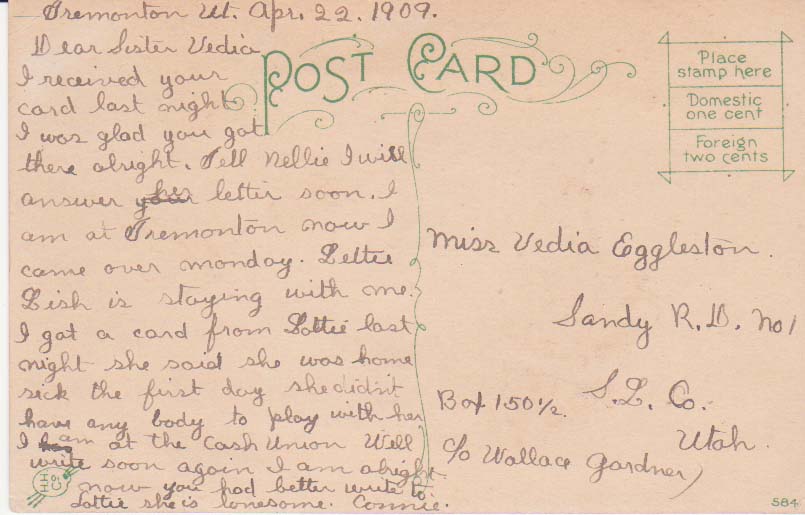 Tremonton Ut. Apr. 22. 1909.
Dear Sister Vedia
I received your
card last night
I was glad you got
there alright. Tell Nellie I will
answer her letter soon. I
am at Tremonton now I
came over monday. Lettie
Lish is staying with me.
I got a card from Lottie last
night she said she was home
sick the first day she didn't
have any body to play with her
I am at the Cash Union Well
write soon again I am alright
now you had better write to
Lottie she is lonesome. Connie.
POST CARD
Place
stamp here
Domestic
one cent
Foreign
two cents
Miss Vedia Eggleston.
Sandy R.D. No 1
Box 150½. S.L. Co.
Utah.
c/o Wallace Gardner
HH
Co.
584